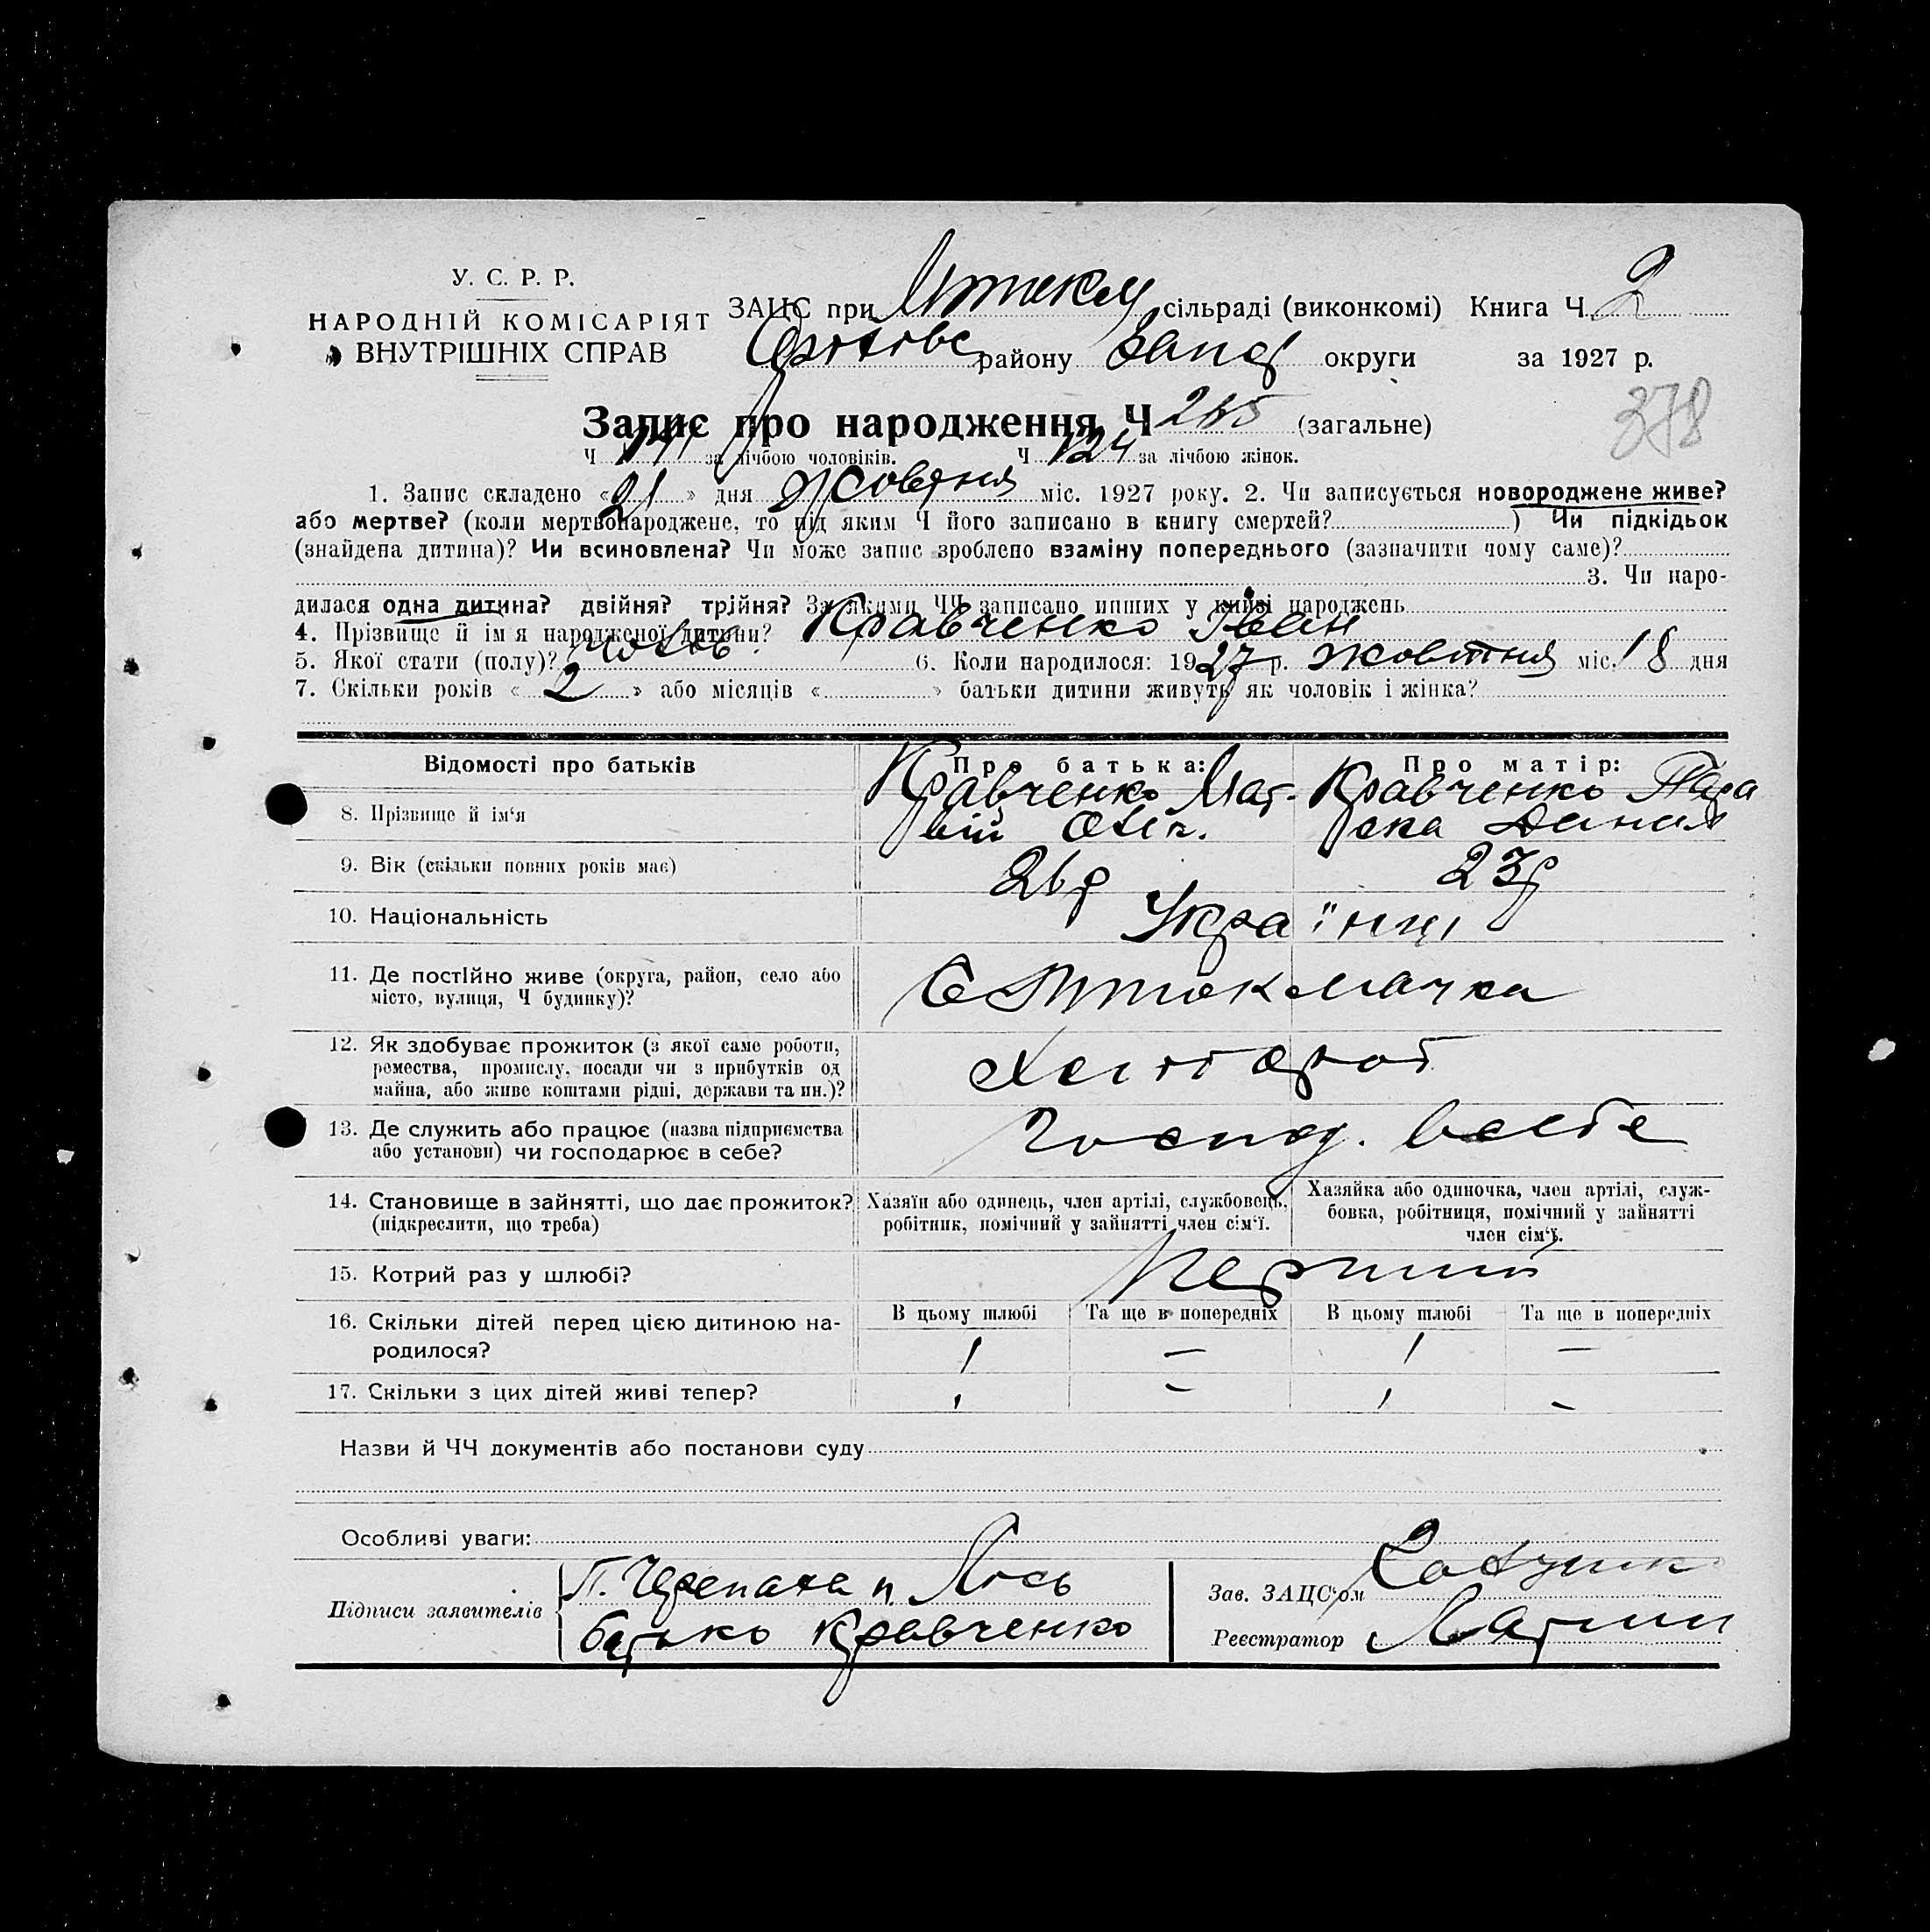 У. С. Р. Р.
НАРОДНІЙ КОМІСАРІЯТ
ВНУТРІШНІХ СПРАВ
ЗАЦС при сільраді (виконкомі) Книга Ч. 2
району Запоріз округи за 1927 р.
Запис про народження Ч 265 (загальне)
378
Ч 141 за лічбою чоловіків. Ч 124 за лічбою жінок.
1. Запис складено «21» дня Жовтня міс. 1927 року. 2. Чи записується новороджене живе?
або мертве? (коли мертвонароджене, то під яким Ч його записано в книгу смертей? ) Чи підкідьок
(знайдена дитина)? Чи всиновлена? Чи може запис зроблено взаміну попереднього (зазначити чому саме)?
3. Чи наро-
дилася одна дитина? двійня? трійня? За якими ЧЧ записано инших у книзі народжень
4. Прізвище й імя народженої дитини? Кравченко Іван
5. Якої стати (полу)? чолов 6. Коли народилося: 1927 р. Жовтня міс. 18 дня
7. Скільки років « 2 » або місяців « » батьки дитини живуть як чоловік і жінка?
Відомості про батьків Про батька: Про матір:
8. Прізвище й ім'я Кравченко Мат- Кравченко Пара
вій ска Данил
9. Вік (скільки повних років має) 26р 23р
10. Національність Українці
11. Де постійно живе (округа, район, село або
місто, вулиця, Ч будинку)? С
12. Як здобуває прожиток (з якої саме роботи,
ремества, промислу, посади чи з прибутків од
майна, або живе коштами рідні, держави та ин.)?
13. Де служить або працює (назва підприємства
або установи) чи господарює в себе? Господ. в себе
14. Становище в зайнятті, що дає прожиток?
(підкреслити, що треба)
Хазяїн або одинець, член артілі, службовець,
робітник, помічний у зайнятті член сім'ї.
Хазяйка або одиночка, член артілі, служ-
бовка, робітниця, помічний у зайнятті
член сім'ї.
15. Котрий раз у шлюбі? Перший
В цьому шлюбі Та ще в попередніх В цьому шлюбі Та ще в попередніх
16. Скільки дітей перед цією дитиною на-
родилося? 1 — 1 —
17. Скільки з цих дітей живі тепер? 1 - 1 -
Назви й ЧЧ документів або постанови суду
Особливі уваги:
Підписи заявителів П. Черепаха п. Лось
батько Кравченко
Зав. ЗАЦС'ом
Реєстратор